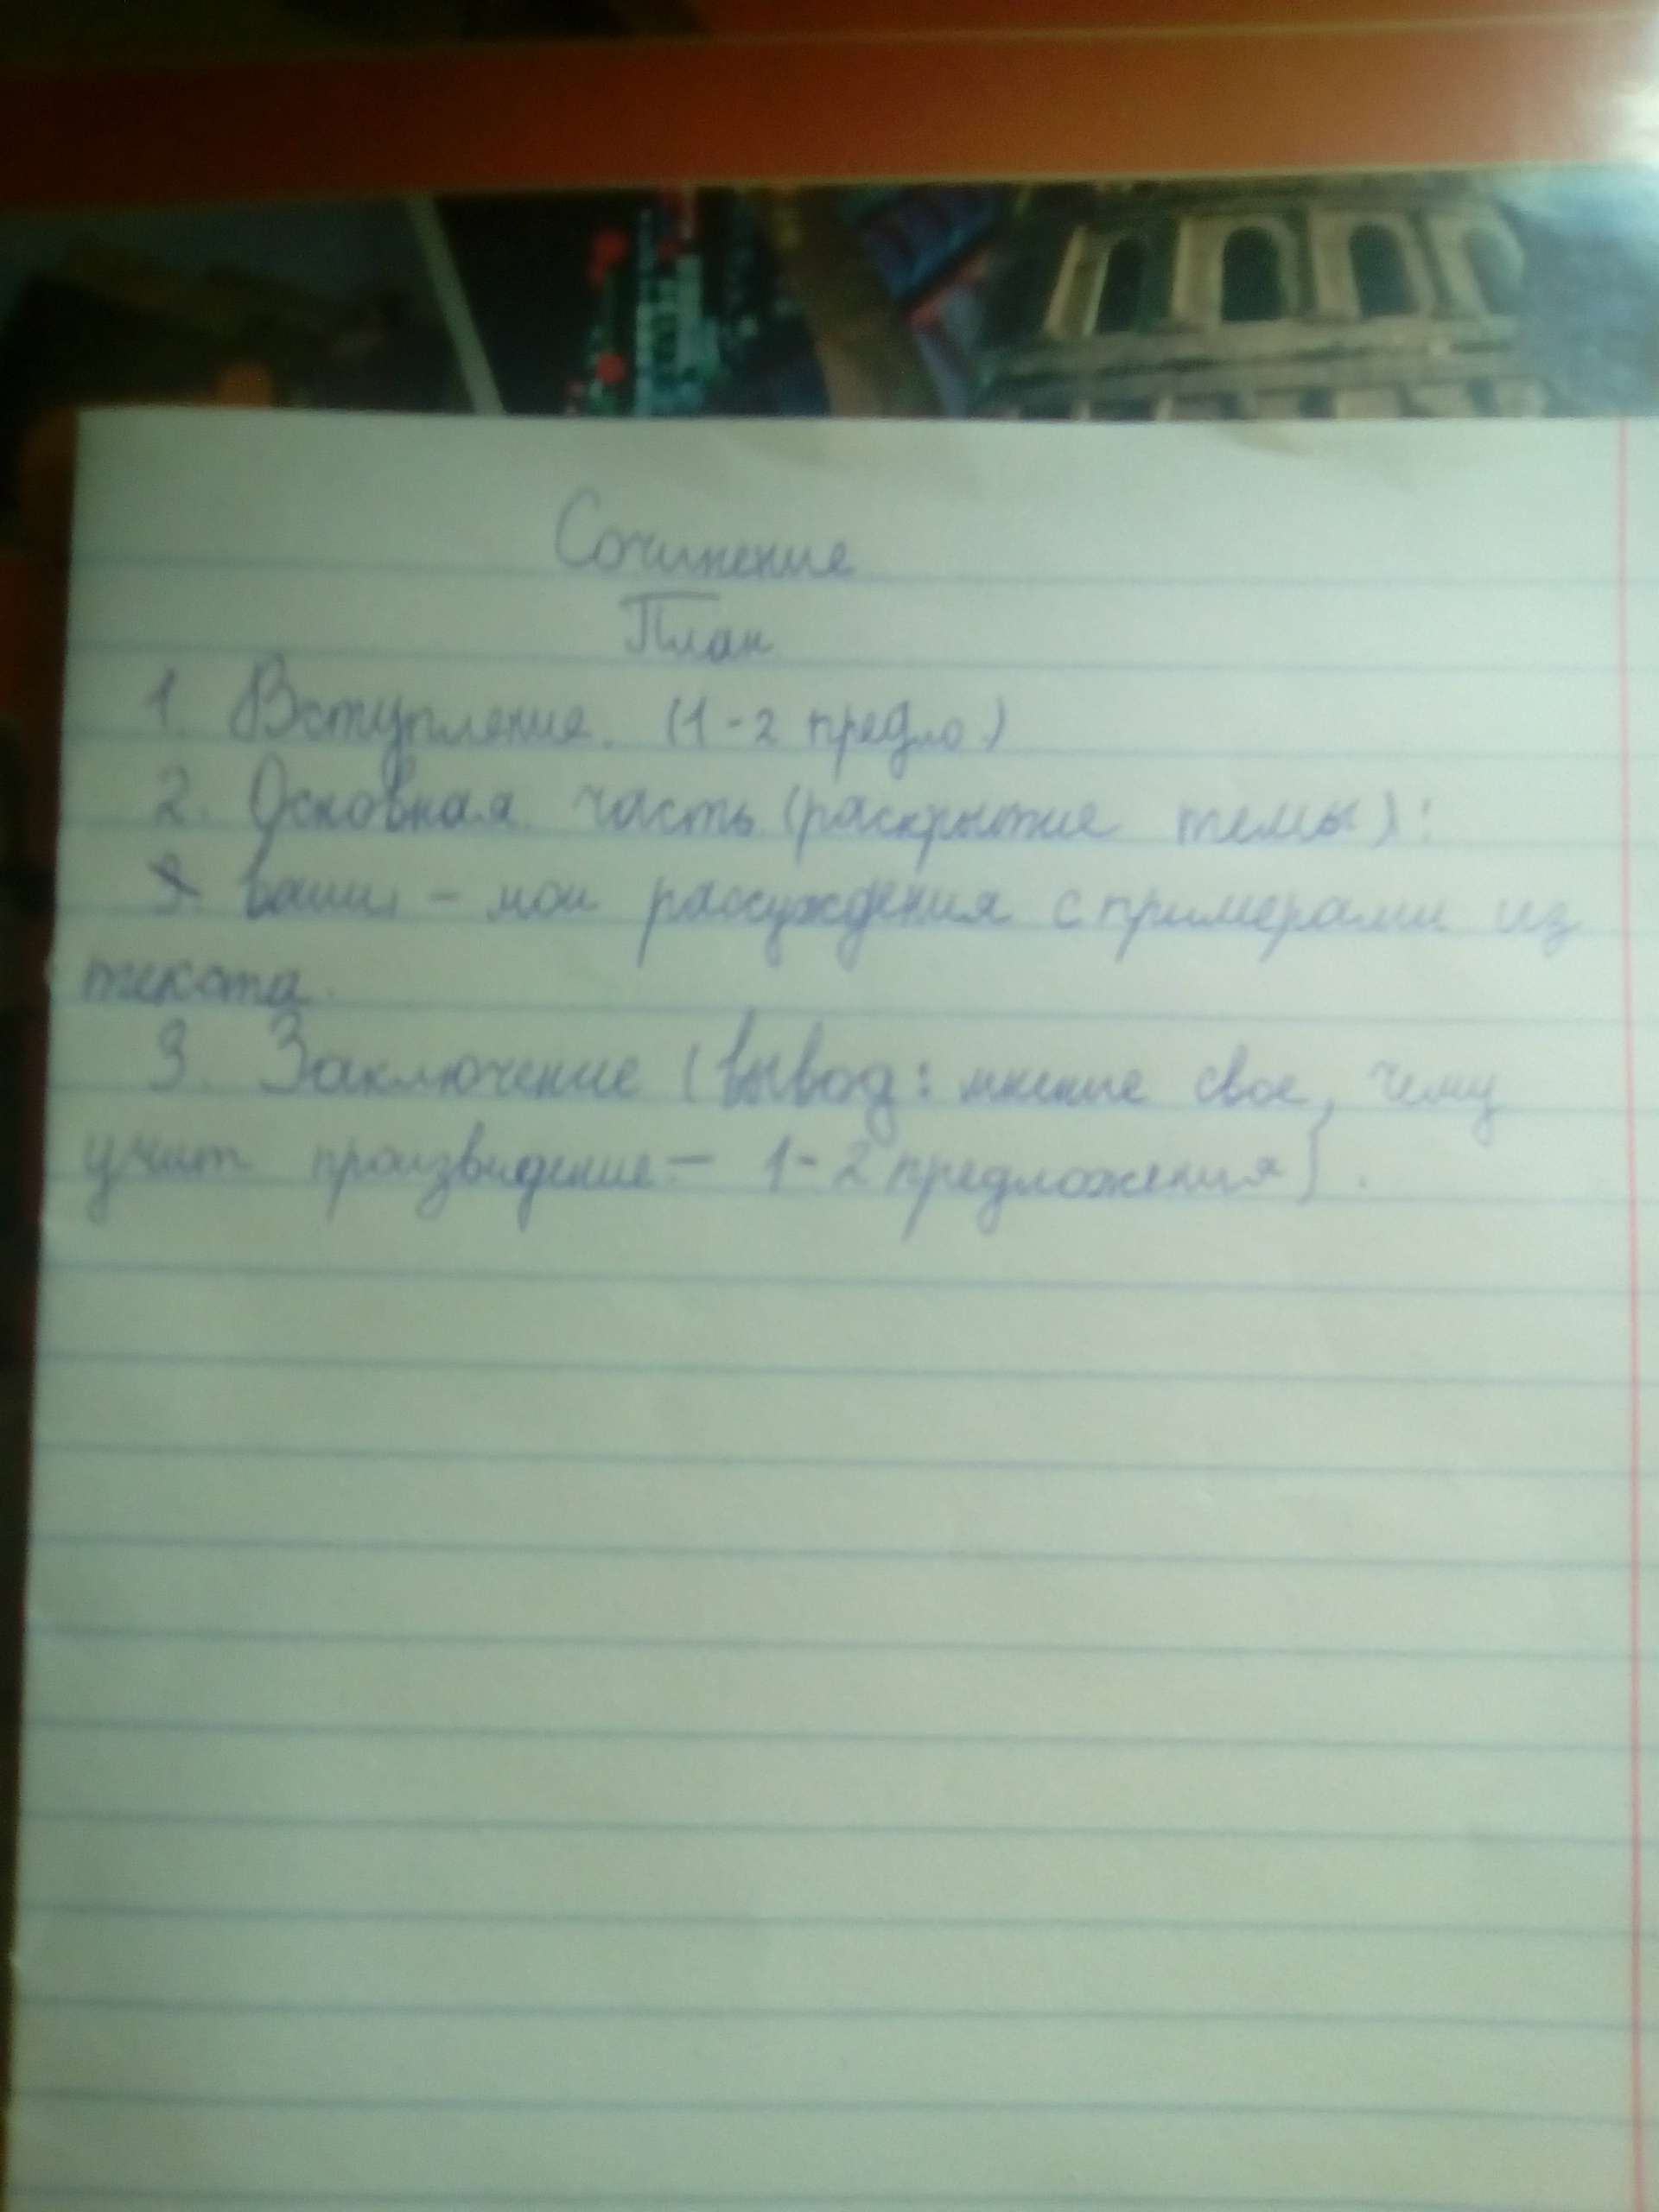 Сочинение
План
1. Вступление. (1-2 предло)
2. Основная часть (раскрытие темы):
ваши, - мои рассуждения с примерами из
текста.
3. Заключение (вывод: мнение свое, чему
учит произведение - 1-2 предложения).